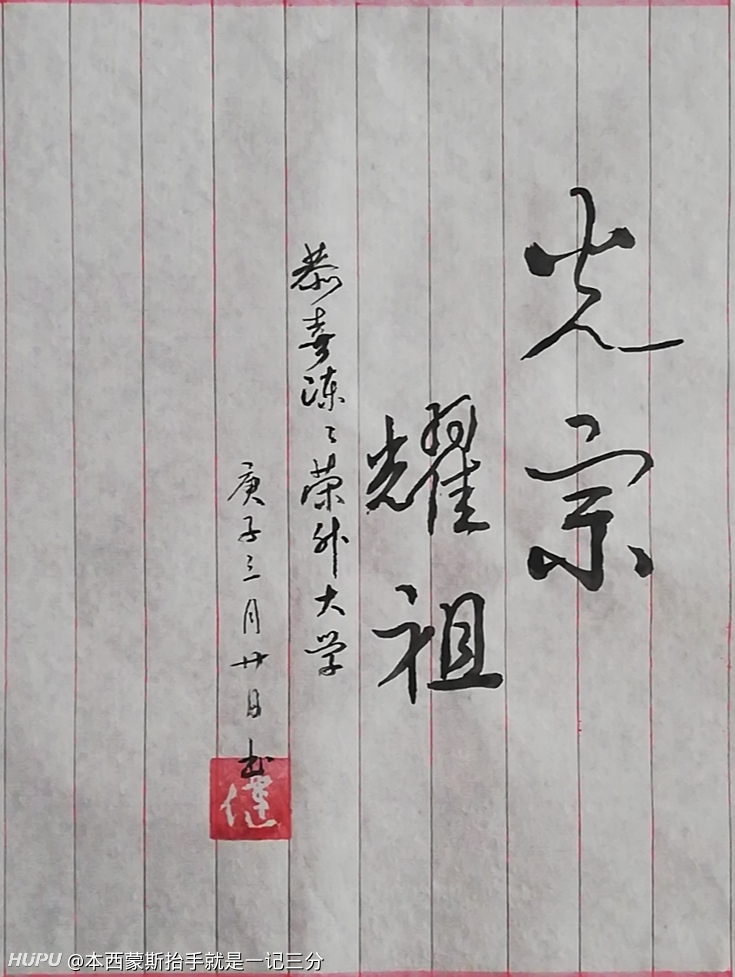 光宗
耀祖
恭喜涑々荣升大学
庚子三月廿日书
健
HUPU @本西蒙斯抬手就是一记三分